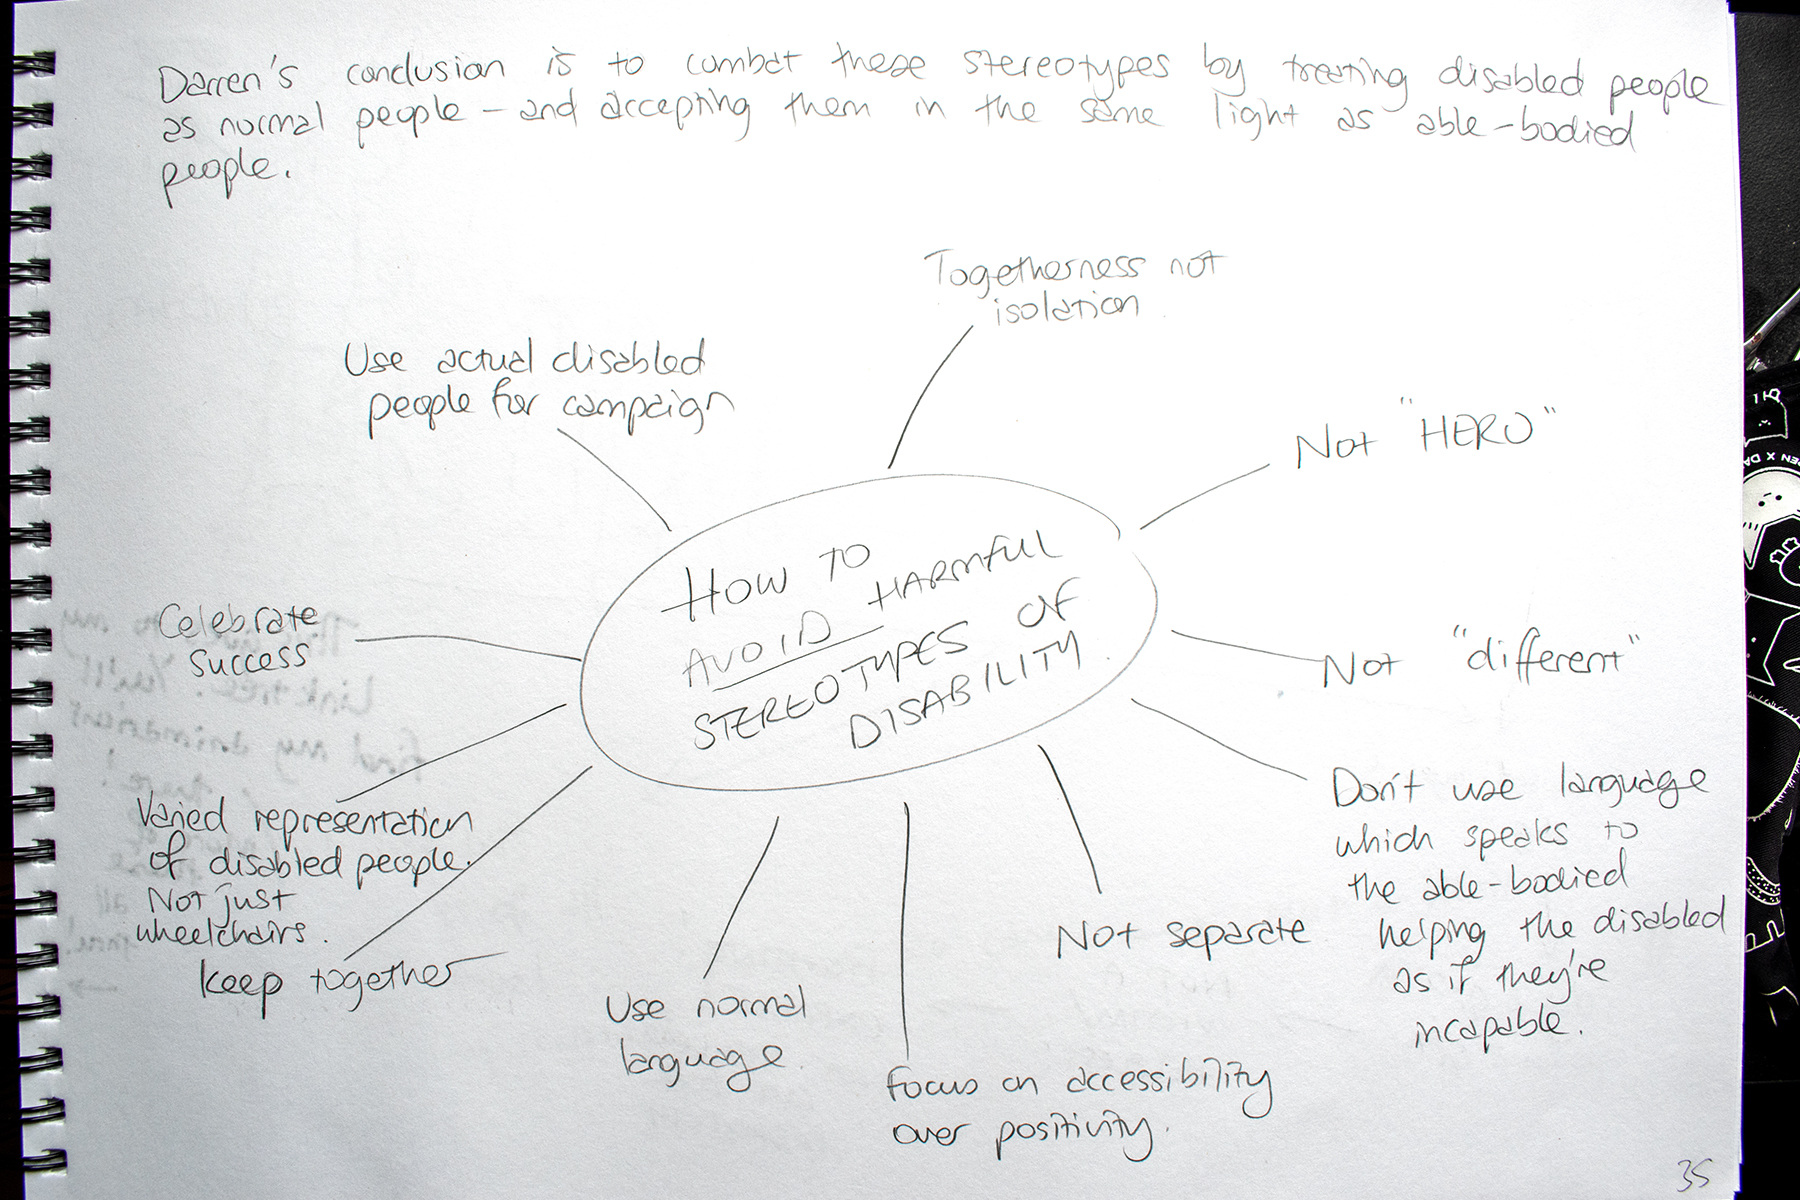 Darren's conclusion is to combat these stereotypes by treating disabled people
as normal people – and accepting them in the same light as able-bodied
people.
Togetherness not
isolation
Use actual disabled
people for campaign
Not "HERO"
HOW TO
AVOID HARMFUL
STEREOTYPES OF
DISABILITY.
Celebrate
success
Not "different"
Varied representation
of disabled people.
Not just
wheelchairs.
keep together
Use normal
language.
Focus on accessibility
over positivity.
Not separate
Don't use language
which speaks to
the able-bodied
helping the disabled
as if they're
incapable.
35